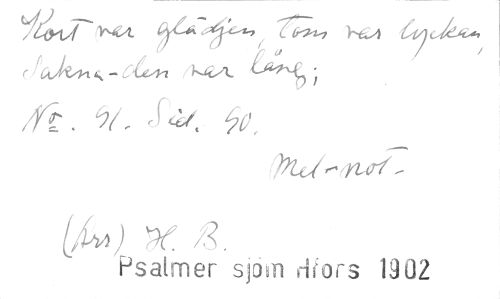 Kort var glädjen, tom var lyckan,
Sakna-den var lång;
No. 91. Sid. 90.
Mel-not-
(Arr) H. B.
Psalmer sjöm Hfors 1902